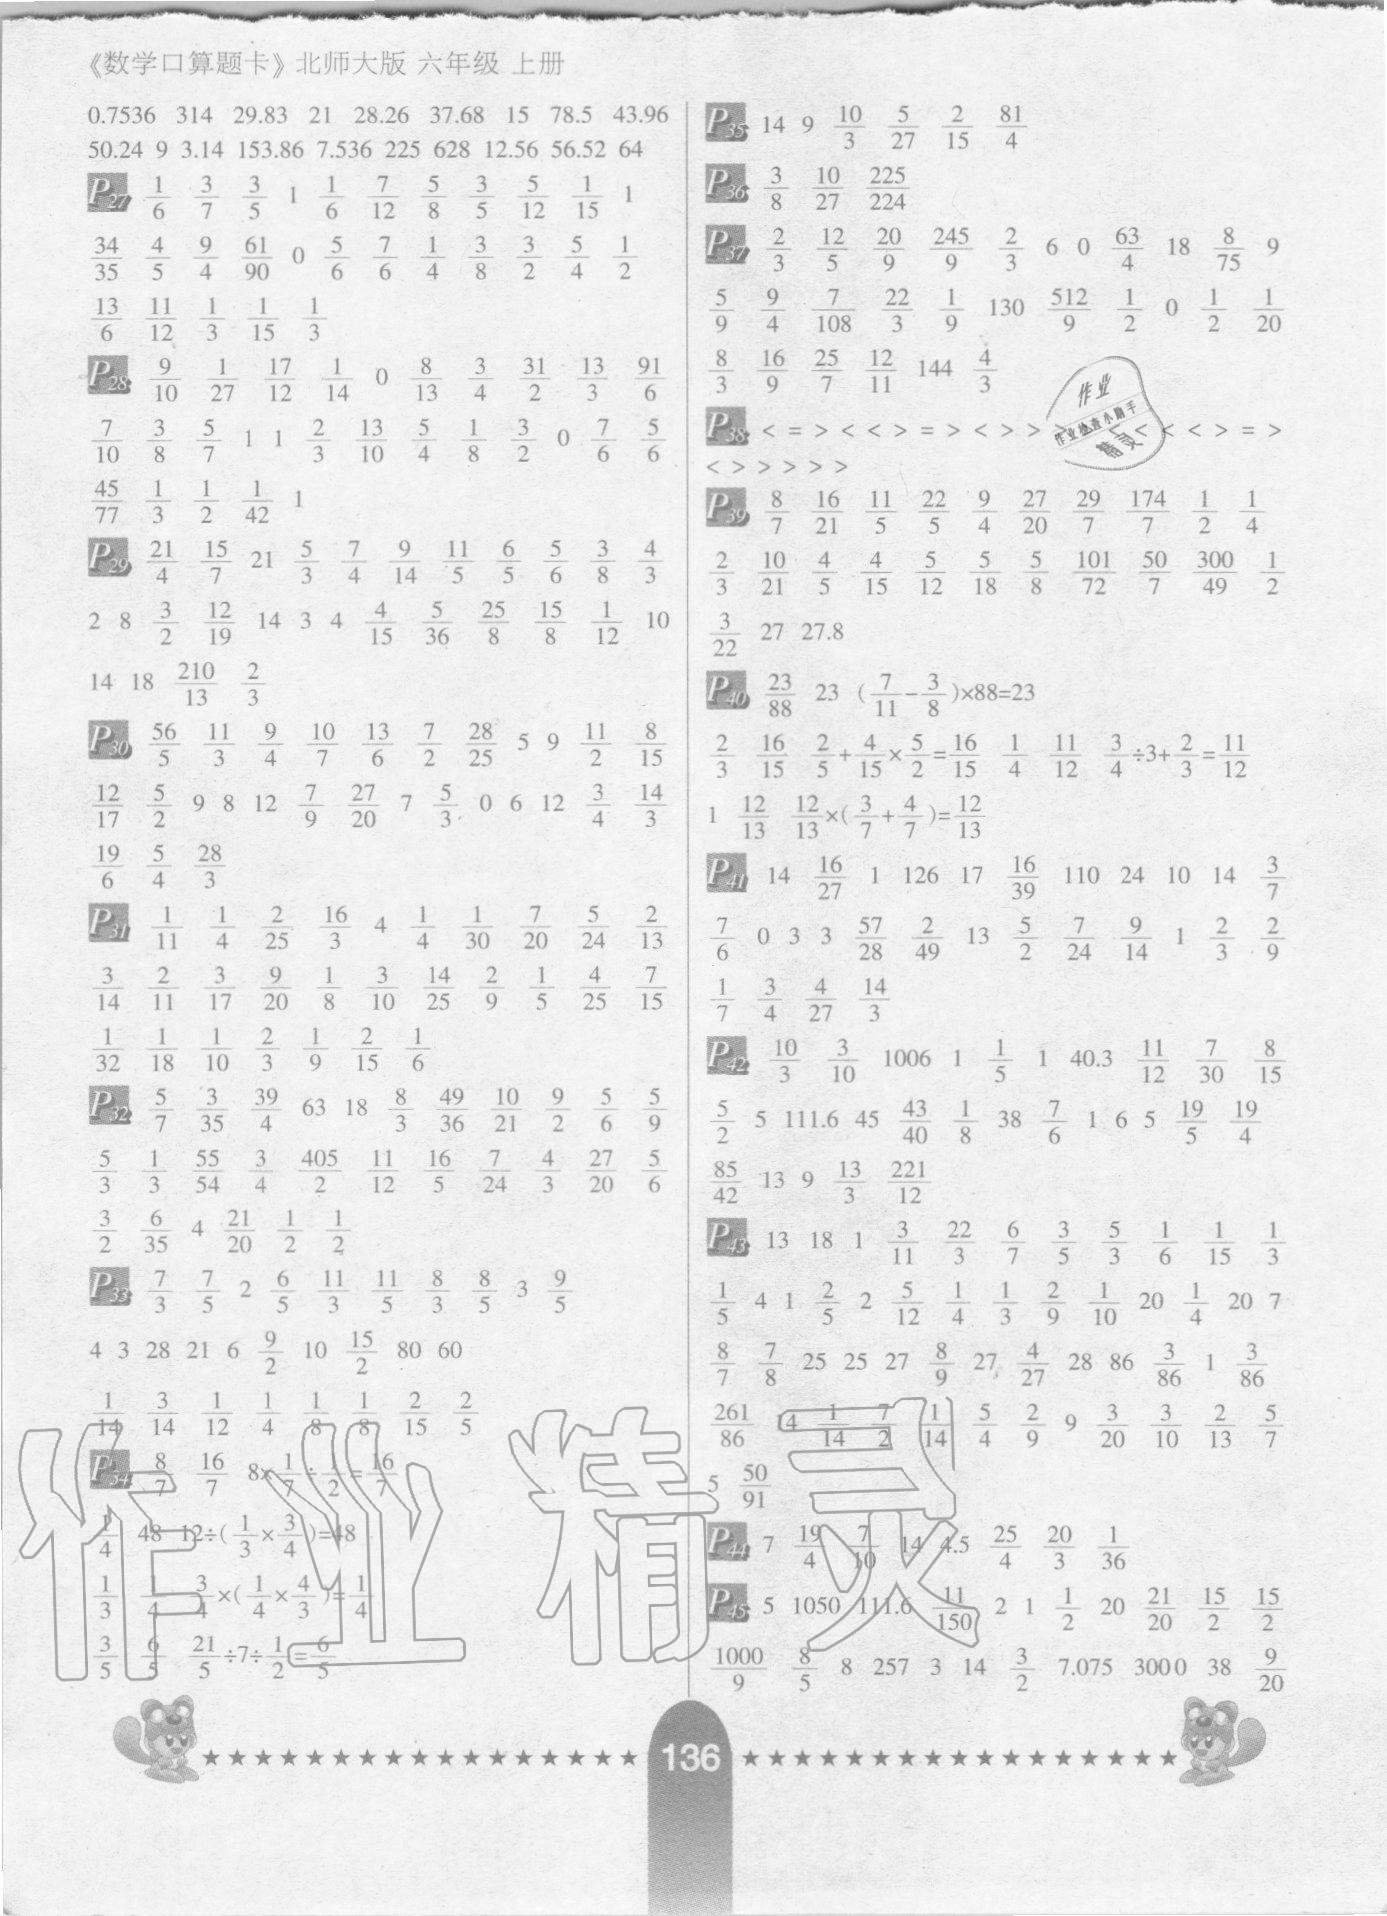 《数学口算题卡》北师大版 六年级 上册
0.7536 314 29.83 21 28.26 37.68 15 78.5 43.96
50.24 9 3.14 153.86 7.536 225 628 12.56 56.52 64
P27 1/6 3/7 3/5 1 1/6 7/12 5/8 3/5 5/12 1/15 1
34/35 4/5 9/4 61/90 0 5/6 7/6 1/4 3/8 3/2 5/4 1/2
13/6 11/12 1/3 1/15 1/3
P28 9/10 1/27 17/12 1/14 0 8/13 3/4 31/2 13/3 91/6
7/10 3/8 5/7 1 1 2/3 13/10 5/4 1/8 3/2 0 7/6 5/6
45/77 1/3 1/2 1/42 1
P29 21/4 15/7 21 5/3 7/4 9/14 11/5 6/5 5/6 3/8 4/3
2 8 3/2 12/19 14 3 4 4/15 5/36 25/8 15/8 1/12 10
14 18 210/13 2/3
P30 56/5 11/3 9/4 10/7 13/6 7/2 28/25 5 9 11/2 8/15
12/17 5/2 9 8 12 7/9 27/20 7 5/3 0 6 12 3/4 14/3
19/6 5/4 28/3
P31 1/11 1/4 2/25 16/3 4 1/4 1/30 7/20 5/24 2/13
3/14 2/11 3/17 9/20 1/8 3/10 14/25 2/9 1/5 4/25 7/15
1/32 1/18 1/10 2/3 1/9 2/15 1/6
P32 5/7 3/35 39/4 63 18 8/3 49/36 10/21 9/2 5/6 5/9
5/3 1/3 55/54 3/4 405/2 11/12 16/5 7/24 4/3 27/20 5/6
3/2 6/35 4 21/20 1/2 1/2
P33 7/3 7/5 2 6/5 11/3 11/5 8/3 8/5 3 9/5
4 3 28 21 6 9/2 10 15/2 80 60
1/14 3/14 1/12 1/4 1/8 1/8 2/15 2/5
P34 8/7 16/7 8×1/7÷1/2=16/7
1/4 48 12÷(1/3×3/4)=48
1/3 1/4 3/4×(1/4×4/3)=1/4
3/5 6/5 21/5÷7÷1/2=6/5
P35 14 9 10/3 5/27 2/15 81/4
P36 3/8 10/27 225/224
P37 2/3 12/5 20/9 245/9 2/3 6 0 63/4 18 8/75 9
5/9 9/4 7/108 22/3 1/9 130 512/9 1/2 0 1/2 1/20
8/3 16/9 25/7 12/11 144 4/3
P38 < = > < < > = > < > > < < < > = >
< > > > > >
P39 8/7 16/21 11/5 22/5 9/4 27/20 29/7 174/7 1/2 1/4
2/3 10/21 4/5 4/15 5/12 5/18 5/8 101/72 50/7 300/49 1/2
3/22 27 27.8
P40 23/88 23 (7/11-3/8)×88=23
2/3 16/15 2/5+4/15×5/2=16/15 1/4 11/12 3/4÷3+2/3=11/12
1 12/13 12/13×(3/7+4/7)=12/13
P41 14 16/27 1 126 17 16/39 110 24 10 14 3/7
7/6 0 3 3 57/28 2/49 13 5/2 7/24 9/14 1 2/3 2/9
1/7 3/4 4/27 14/3
P42 10/3 3/10 1006 1 1/5 1 40.3 11/12 7/30 8/15
5/2 5 111.6 45 43/40 1/8 38 7/6 1 6 5 19/5 19/4
85/42 13 9 13/3 221/12
P43 13 18 1 3/11 22/3 6/7 3/5 5/3 1/6 1/15 1/3
1/5 4 1 2/5 2 5/12 1/4 1/3 2/9 1/10 20 1/4 20 7
8/7 7/8 25 25 27 8/9 27 4/27 28 86 3/86 1 3/86
261/86 4 1/14 7/2 1/14 5/4 2/9 9 3/20 3/10 2/13 5/7
5 50/91
P44 7 19/4 7/10 14 4.5 25/4 20/3 1/36
P45 5 1050 111.6 11/150 2 1 1/2 20 21/20 15/2 15/2
1000/9 8/5 8 257 3 14 3/2 7.075 3000 38 9/20
136
作业
作业检查小助手
精灵
作业精灵